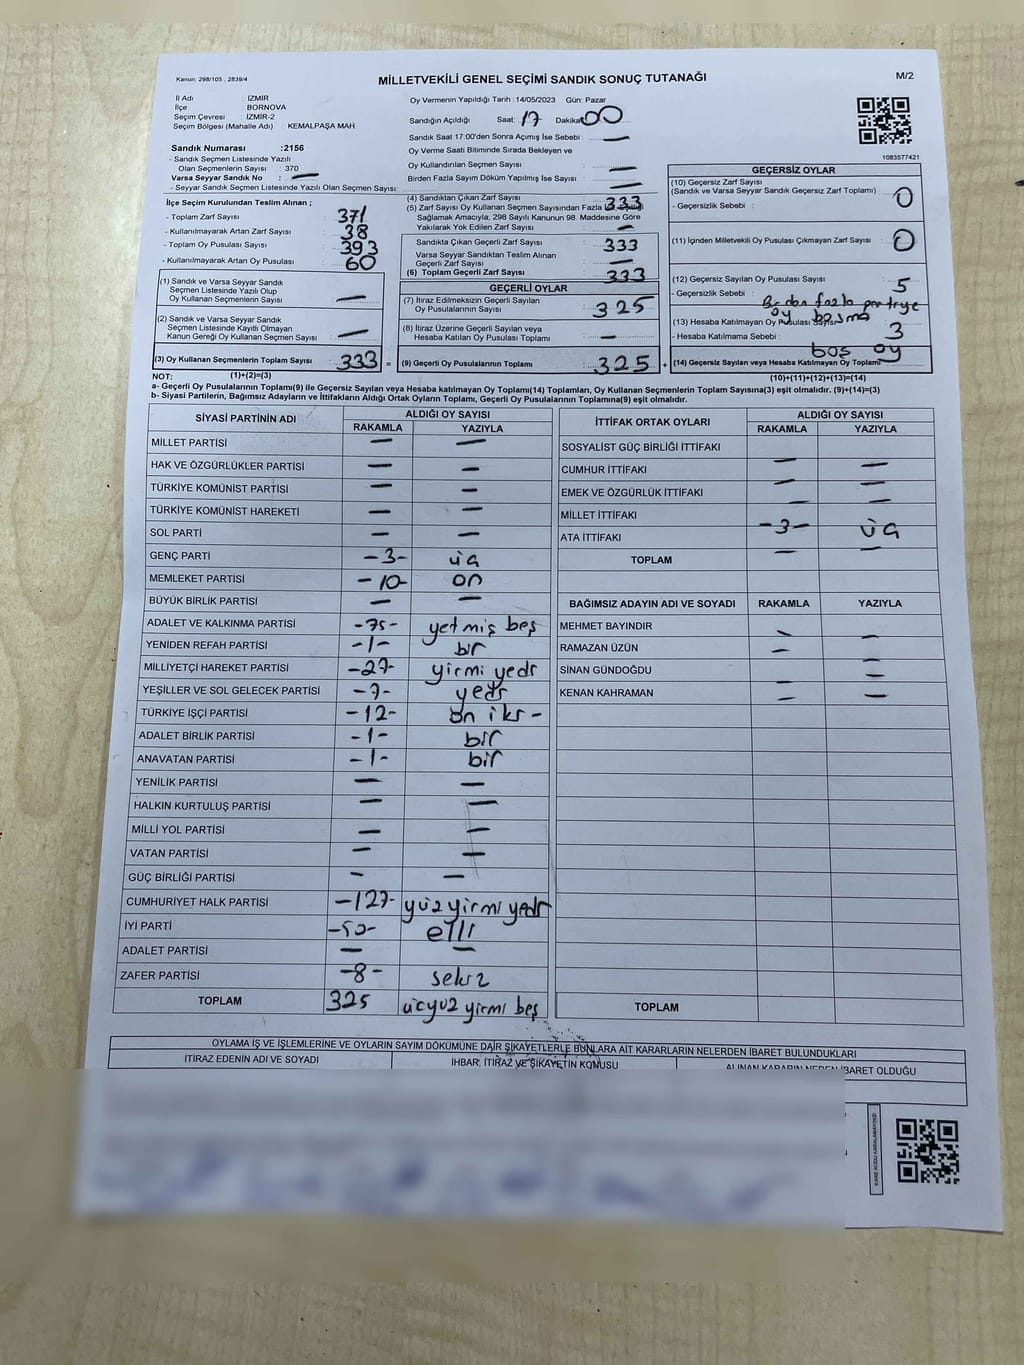 Kanun: 298/105 , 2839/4
MİLLETVEKİLİ GENEL SEÇİMİ SANDIK SONUÇ TUTANAĞI
M/2
İl Adı : İZMİR
İlçe : BORNOVA
Seçim Çevresi : İZMİR-2
Seçim Bölgesi (Mahalle Adı) : KEMALPAŞA MAH.
Sandık Numarası :2156
- Sandık Seçmen Listesinde Yazılı
Olan Seçmenlerin Sayısı : 370
Varsa Seyyar Sandık No : —
- Seyyar Sandık Seçmen Listesinde Yazılı Olan Seçmen Sayısı:
İlçe Seçim Kurulundan Teslim Alınan ;
- Toplam Zarf Sayısı 371
- Kullanılmayarak Artan Zarf Sayısı 38
- Toplam Oy Pusulası Sayısı 393
- Kullanılmayarak Artan Oy Pusulası 60
(1) Sandık ve Varsa Seyyar Sandık
Seçmen Listesinde Yazılı Olup
Oy Kullanan Seçmenlerin Sayısı —
(2) Sandık ve Varsa Seyyar Sandık
Seçmen Listesinde Kayıtlı Olmayan
Kanun Gereği Oy Kullanan Seçmen Sayısı —
(3) Oy Kullanan Seçmenlerin Toplam Sayısı 333 =
Oy Vermenin Yapıldığı Tarih :14/05/2023 Gün: Pazar
Sandığın Açıldığı Saat: 17 Dakika: 00
Sandık Saat 17:00'den Sonra Açımış İse Sebebi : —
Oy Verme Saati Bitiminde Sırada Bekleyen ve
Oy Kullandırılan Seçmen Sayısı —
Birden Fazla Sayım Döküm Yapılmış İse Sayısı —
(4) Sandıktan Çıkan Zarf Sayısı 333
(5) Zarf Sayısı Oy Kullanan Seçmen Sayısından Fazla İse Eşitliği
Sağlamak Amacıyla; 298 Sayılı Kanunun 98. Maddesine Göre
Yakılarak Yok Edilen Zarf Sayısı —
Sandıkta Çıkan Geçerli Zarf Sayısı 333
Varsa Seyyar Sandıktan Teslim Alınan
Geçerli Zarf Sayısı —
(6) Toplam Geçerli Zarf Sayısı 333
GEÇERLİ OYLAR
(7) İtiraz Edilmeksizin Geçerli Sayılan
Oy Pusulalarının Sayısı 325
(8) İtiraz Üzerine Geçerli Sayılan veya
Hesaba Katılan Oy Pusulası Toplamı —
(9) Geçerli Oy Pusulalarının Toplamı 325 +
1083577421
GEÇERSİZ OYLAR
(10) Geçersiz Zarf Sayısı
(Sandık ve Varsa Seyyar Sandık Geçersiz Zarf Toplamı) : 0
- Geçersizlik Sebebi :
(11) İçinden Milletvekili Oy Pusulası Çıkmayan Zarf Sayısı 0
(12) Geçersiz Sayılan Oy Pusulası Sayısı 5
- Geçersizlik Sebebi : Birden fazla partiye
oy basma
(13) Hesaba Katılmayan Oy Pusulası Sayısı 3
- Hesaba Katılmama Sebebi : boş oy
(14) Geçersiz Sayılan veya Hesaba Katılmayan Oy Toplamı
NOT: (1)+(2)=(3) (10)+(11)+(12)+(13)=(14)
a- Geçerli Oy Pusulalarının Toplamı(9) ile Geçersiz Sayılan veya Hesaba katılmayan Oy Toplamı(14) Toplamları, Oy Kullanan Seçmenlerin Toplam Sayısına(3) eşit olmalıdır. (9)+(14)=(3)
b- Siyasi Partilerin, Bağımsız Adayların ve İttifakların Aldığı Ortak Oyların Toplamı, Geçerli Oy Pusulalarının Toplamına(9) eşit olmalıdır.
SİYASİ PARTİNİN ADI ALDIĞI OY SAYISI
RAKAMLA YAZIYLA
MİLLET PARTİSİ — —
HAK VE ÖZGÜRLÜKLER PARTİSİ — —
TÜRKİYE KOMÜNİST PARTİSİ — —
TÜRKİYE KOMÜNİST HAREKETİ — —
SOL PARTİ — —
GENÇ PARTİ -3- üç
MEMLEKET PARTİSİ -10- on
BÜYÜK BİRLİK PARTİSİ — —
ADALET VE KALKINMA PARTİSİ -75- yetmiş beş
YENİDEN REFAH PARTİSİ -1- bir
MİLLİYETÇİ HAREKET PARTİSİ -27- yirmi yedi
YEŞİLLER VE SOL GELECEK PARTİSİ -7- yedi
TÜRKİYE İŞÇİ PARTİSİ -12- on iki -
ADALET BİRLİK PARTİSİ -1- bir
ANAVATAN PARTİSİ -1- bir
YENİLİK PARTİSİ — —
HALKIN KURTULUŞ PARTİSİ — —
MİLLİ YOL PARTİSİ — —
VATAN PARTİSİ — —
GÜÇ BİRLİĞİ PARTİSİ — —
CUMHURİYET HALK PARTİSİ -127- yüz yirmi yedi
İYİ PARTİ -50- elli
ADALET PARTİSİ — —
ZAFER PARTİSİ -8- sekiz
TOPLAM 325 üçyüz yirmi beş
İTTİFAK ORTAK OYLARI ALDIĞI OY SAYISI
RAKAMLA YAZIYLA
SOSYALİST GÜÇ BİRLİĞİ İTTİFAKI — —
CUMHUR İTTİFAKI — —
EMEK VE ÖZGÜRLÜK İTTİFAKI — —
MİLLET İTTİFAKI -3- üç
ATA İTTİFAKI — —
TOPLAM
BAĞIMSIZ ADAYIN ADI VE SOYADI RAKAMLA YAZIYLA
MEHMET BAYINDIR — —
RAMAZAN ÜZÜN — —
SİNAN GÜNDOĞDU — —
KENAN KAHRAMAN — —
TOPLAM
OYLAMA İŞ VE İŞLEMLERİNE VE OYLARIN SAYIM DÖKÜMÜNE DAİR ŞİKAYETLERLE BUNLARA AİT KARARLARIN NELERDEN İBARET BULUNDUKLARI
İTİRAZ EDENİN ADI VE SOYADI İHBAR, İTİRAZ VE ŞİKAYETİN KONUSU ALINAN KARARIN NEDEN İBARET OLDUĞU
KARE KODU KARALAMAYINIZ!